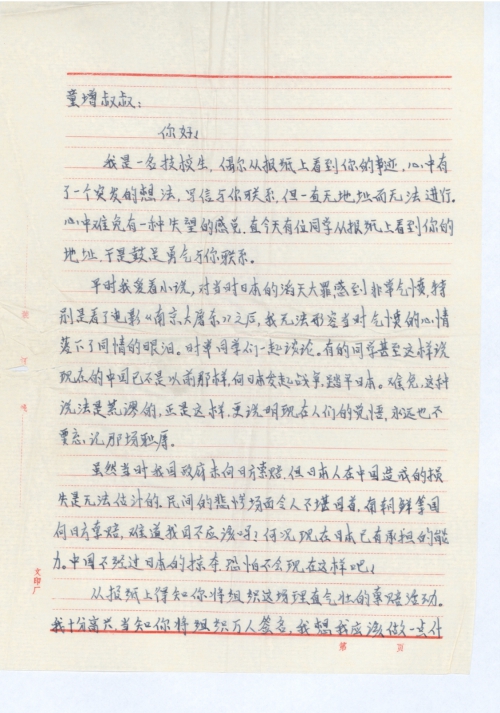 童增叔叔：
你好！
我是一名技校生，偶尔从报纸上看到你的事迹，心中有
了一个突发的想法，写信与你联系，但一直无地址而无法进行。
心中难免有一种失望的感觉，直今天有位同学从报纸上看到你的
地址，于是鼓足勇气与你联系。
平时我爱看小说，对当时日本的滔天大罪，感到非常气愤，特
别是看了电影《南京大屠杀》之后，我无法形容当时气愤的心情
落下了同情的眼泪。时常同学们一起谈论。有的同学甚至这样说
现在的中国已不是以前那样，向日本发起战争，踏平日本。难免，这种
说法是荒谬的，正是这样，更说明现在人们的觉悟，永远也不
要忘记那场耻辱。
虽然当时我国政府未向日方索赔，但日本人在中国造成的损
失是无法估计的。民间的悲惨场面令人不堪回首。有朝鲜等国
向日方索赔，难道我国不应该吗？何况现在日本已有承担的能
力。中国不经过日本的掠夺，恐怕不会现在这样吧！
从报纸上得知你将组织这场理直气壮的索赔活动。
我十分高兴，当知你将组织万人签名，我想我应该做一些什
文印厂
第 页